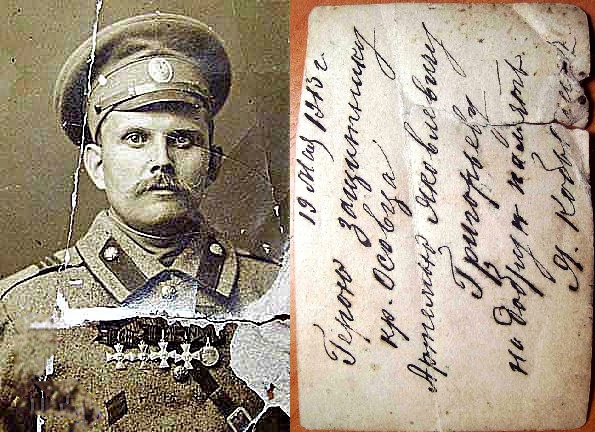 19 Мая 1913 г.
Герою защитнику
кр. Осовца
Артемью Яковлевичу
Григорьеву
на добрую память
Я.